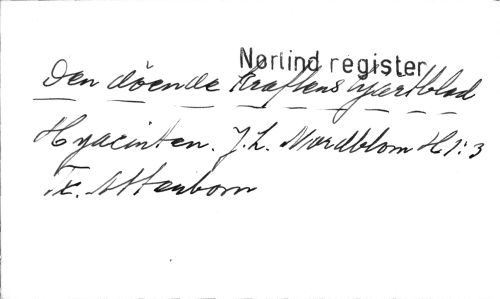 Norlind register
Den döende kraftens hjertblad
Hyacinten. J. L. Nordblom H 1: 3
Tx. Attenborn